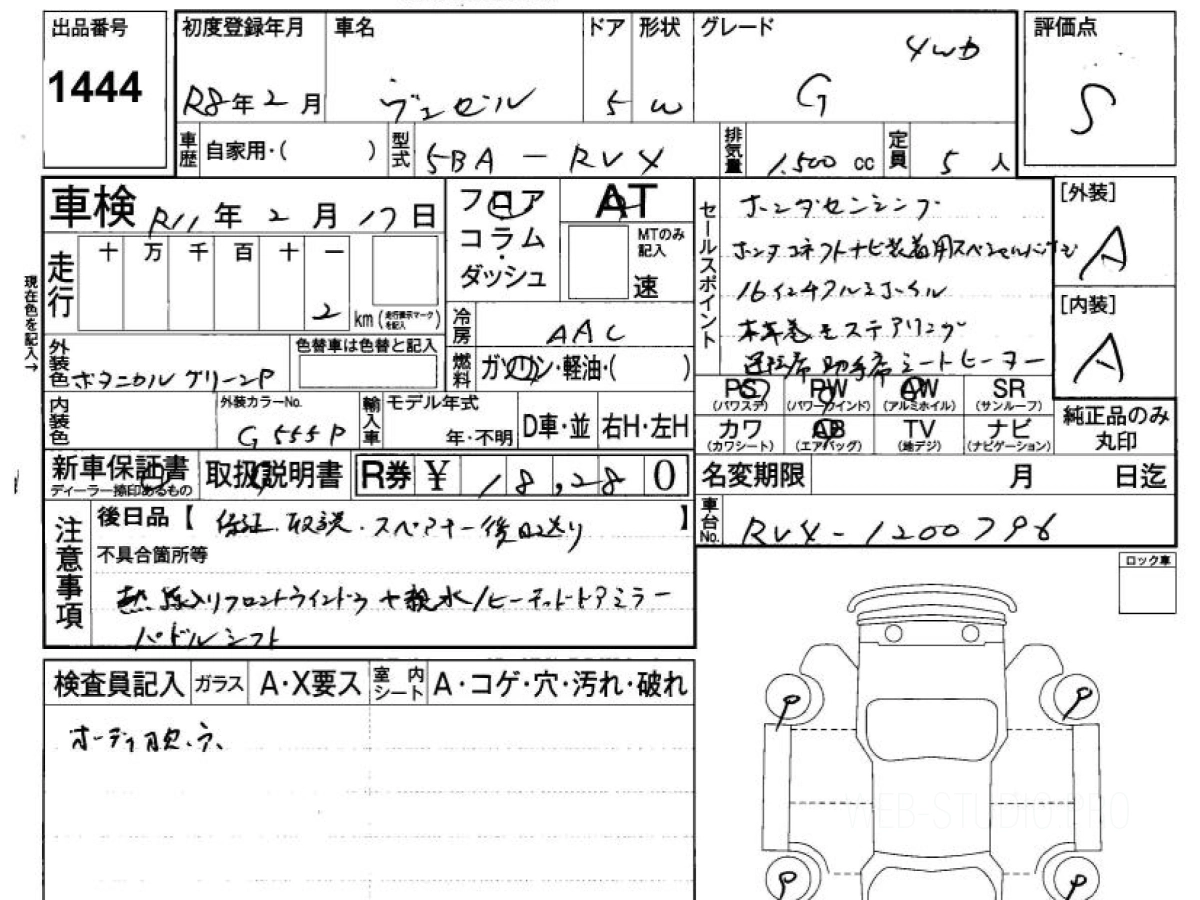 出品番号
1444
初度登録年月
R8年2月
車名
ヴェゼル
ドア
5
形状
W
グレード
4WD
G
評価点
S
車歴 自家用・( )
型式 5BA-RV4
排気量 1,500 cc
定員 5人
車検 R11年2月17日
フロア
コラム
・
ダッシュ
AT
MTのみ記入
速
セールスポイント
ホンダセンシング
ホンダコネクトナビ装着用スペシャルパッケージ
16インチアルミホイール
本革巻きステアリング
運転席助手席シートヒーター
[外装]
A
[内装]
A
現在色を記入→
走行
十 万 千 百 十 一
2 km(走行表示マークを記入)
冷房 AAC
燃料 ガソリン・軽油・( )
外装色 ボタニカルグリーンP
色替車は色替と記入
内装色
外装カラーNo.
G555P
輸入車
モデル年式
年・不明
D車・並
右H・左H
PS PW AW SR
(パワステ) (パワーウインド) (アルミホイル) (サンルーフ)
カワ AB TV ナビ
(カワシート) (エアバッグ) (地デジ) (ナビゲーション)
純正品のみ
丸印
新車保証書
ディーラー捺印あるもの
取扱説明書
R券 ¥ 18,280
名変期限 月 日迄
車台No. RV4-1200796
注意事項
後日品【保証.取説.スペアキー後日送り】
不具合箇所等
熱線入りフロントウインドウ+親水/ヒーテッドドアミラー
パドルシフト
ロック車
検査員記入
ガラス A・X要ス
室内シート A・コゲ・穴・汚れ・破れ
P
P
P
P
WEB-STUDIO.PRO